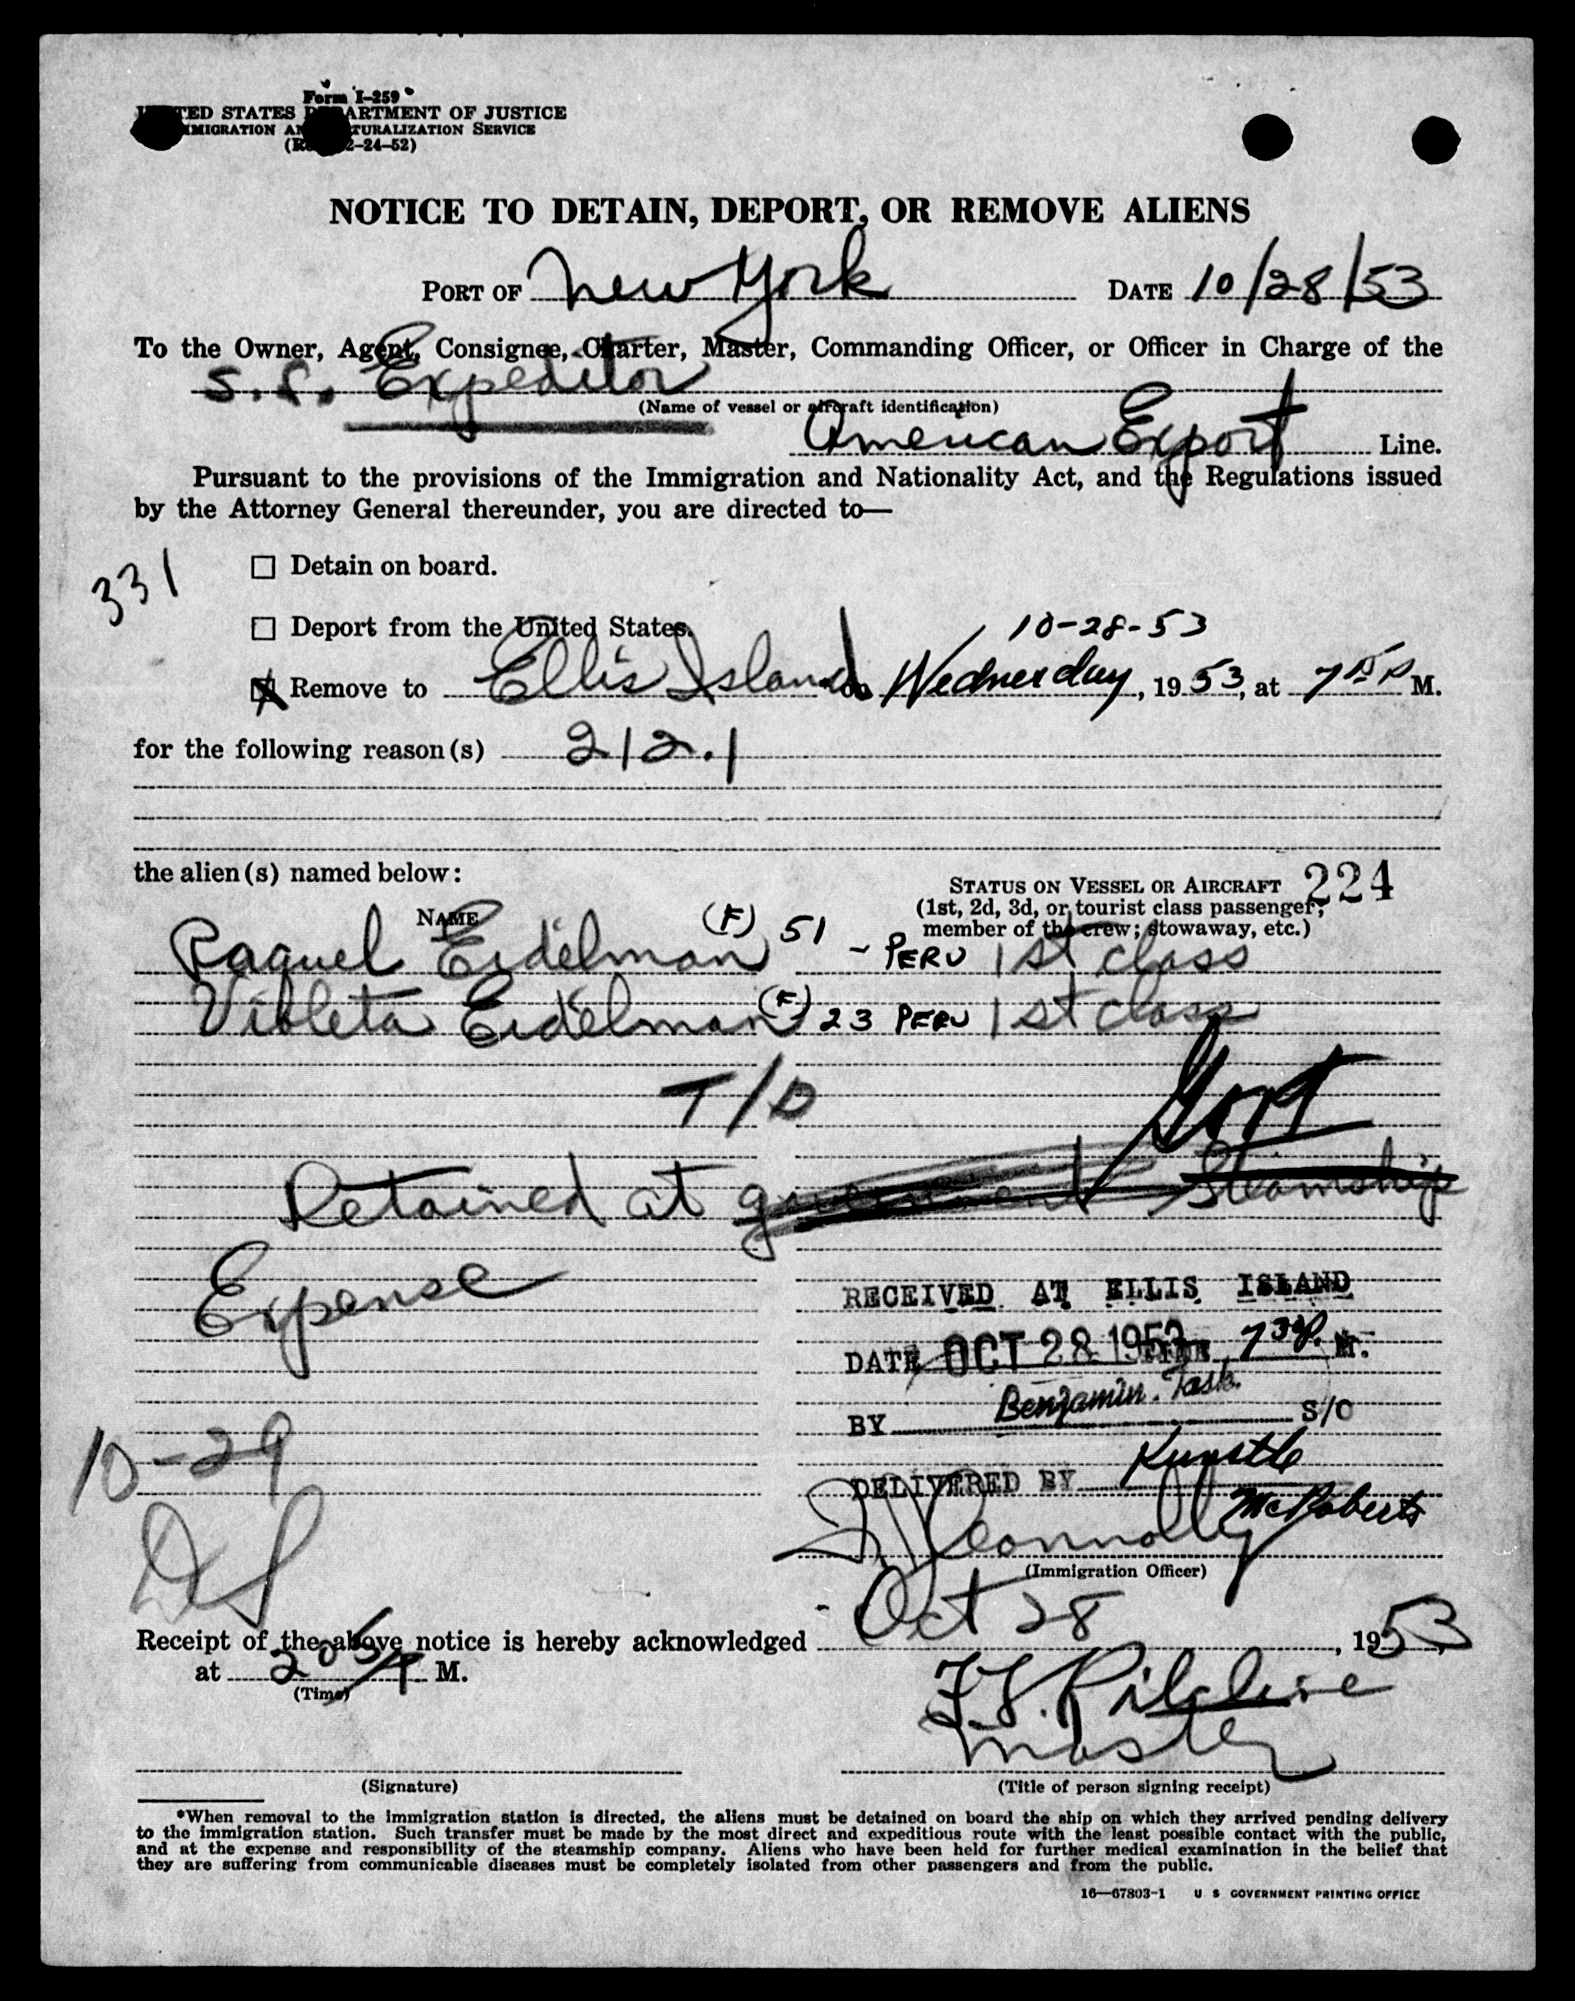 Form I-259
UNITED STATES DEPARTMENT OF JUSTICE
IMMIGRATION AND NATURALIZATION SERVICE
2-24-52)
NOTICE TO DETAIN, DEPORT, OR REMOVE ALIENS
PORT OF New York DATE 10/28/53
To the Owner, Agent, Consignee, Charter, Master, Commanding Officer, or Officer in Charge of the
S.S. Expeditor
(Name of vessel or aircraft identification)
American Export Line.
Pursuant to the provisions of the Immigration and Nationality Act, and the Regulations issued
by the Attorney General thereunder, you are directed to—
331
☐ Detain on board.
☐ Deport from the United States.
10-28-53
☒ Remove to Ellis Island on Wednesday, 1953, at 7 15 P M.
for the following reason(s) 212.1
the alien(s) named below:
STATUS ON VESSEL OR AIRCRAFT 224
NAME (1st, 2d, 3d, or tourist class passenger;
member of the crew; stowaway, etc.)
Raquel Eidelman (F) 51 - PERU 1st class
Violeta Eidelman (F) 23 PERU 1st class
T/D
Govt
Detained at government Steamship
Expense
RECEIVED AT ELLIS ISLAND
DATE OCT 28 1953 TIME 7 30 P. M.
BY Benjamin. Task. S/O
10-29
DELIVERED BY Kunstle
McRoberts
Connolly
(Immigration Officer)
DS
Receipt of the above notice is hereby acknowledged Oct 28, 1953,
at 2 05 P M.
(Time)
Master
(Signature) (Title of person signing receipt)
*When removal to the immigration station is directed, the aliens must be detained on board the ship on which they arrived pending delivery
to the immigration station. Such transfer must be made by the most direct and expeditious route with the least possible contact with the public,
and at the expense and responsibility of the steamship company. Aliens who have been held for further medical examination in the belief that
they are suffering from communicable diseases must be completely isolated from other passengers and from the public.
16—67803-1 U S GOVERNMENT PRINTING OFFICE